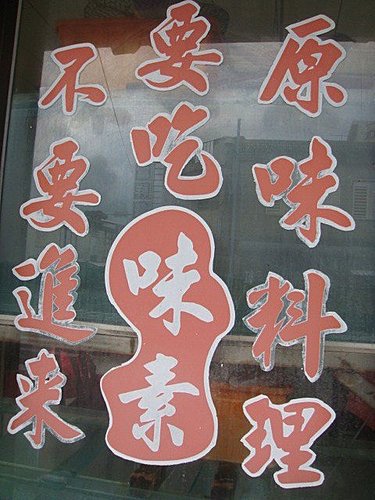 原味料理
要吃味素
不要進來